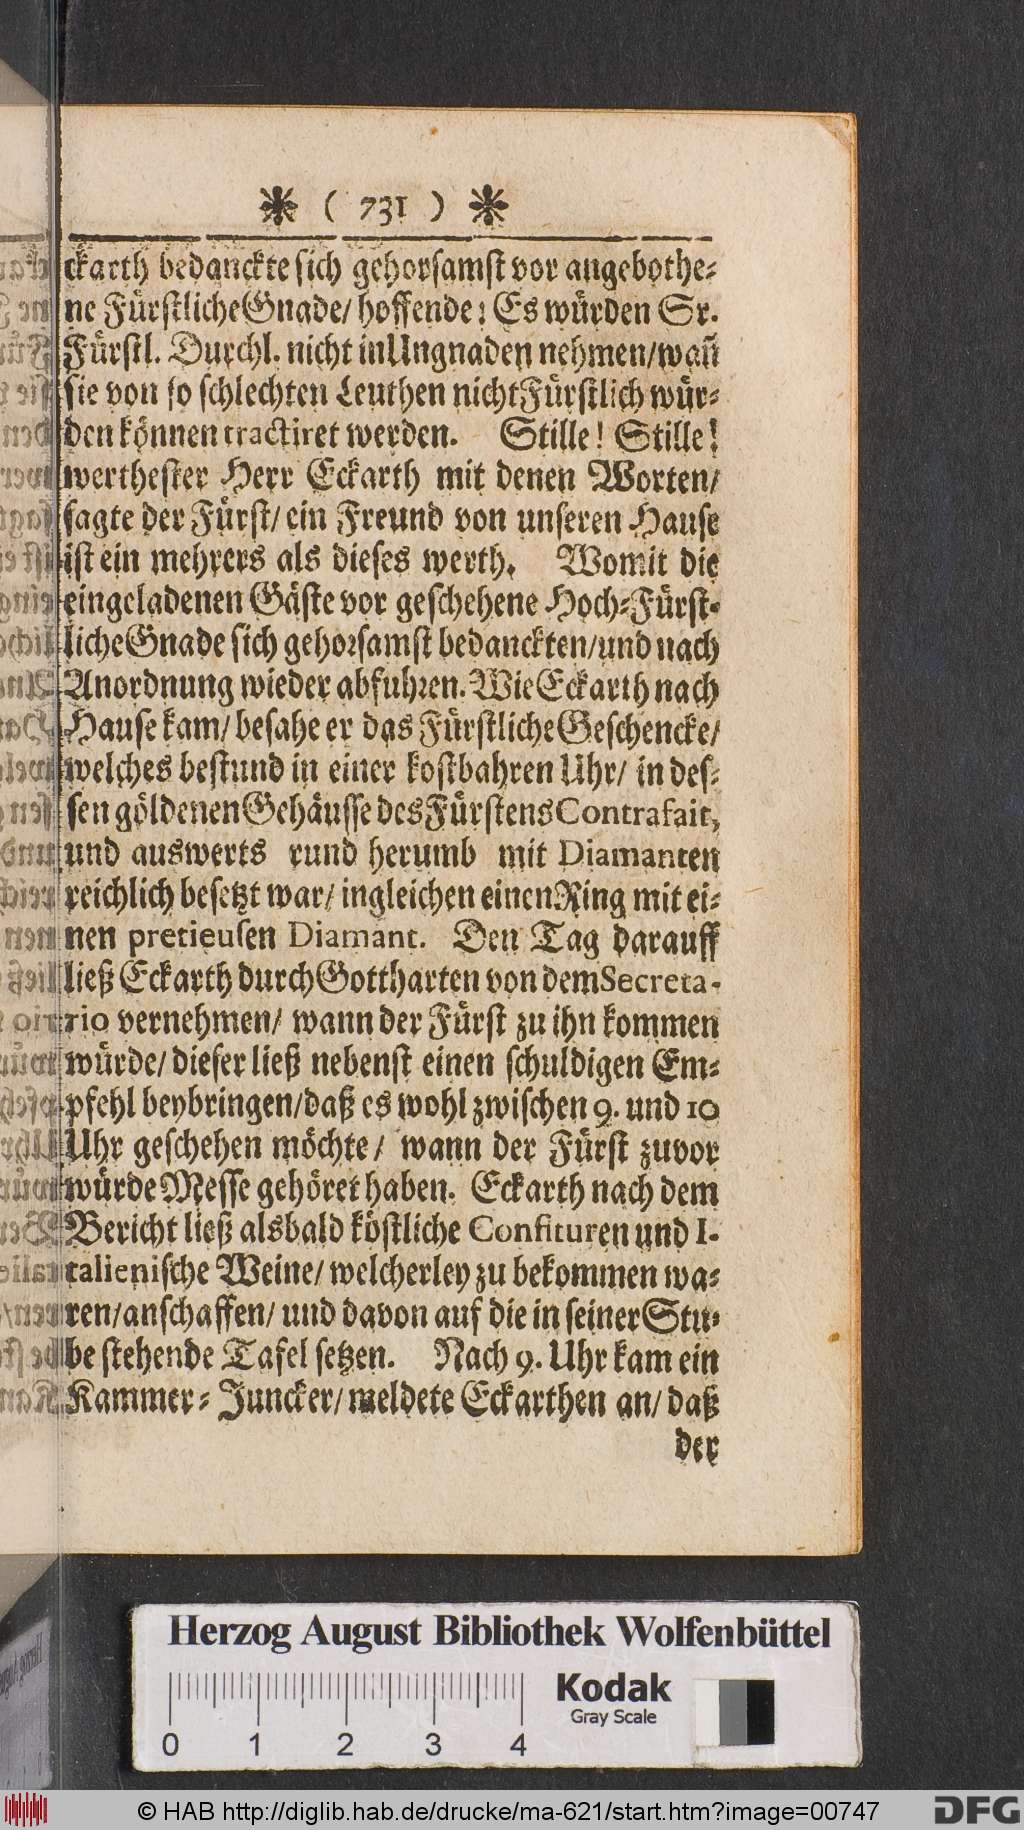 ( 731 )
ckarth bedanckte sich gehorsamst vor angebothe-
ne Fürstliche Gnade/ hoffende: Es würden Sr.
Fürstl. Durchl. nicht in Ungnaden nehmen/ wañ
sie von so schlechten Leuthen nicht Fürstlich wür-
den können tractiret werden. Stille! Stille!
werthester Herr Eckarth mit denen Worten/
sagte der Fürst/ ein Freund von unseren Hause
ist ein mehrers als dieses werth. Womit die
eingeladenen Gäste vor geschehene Hoch-Fürst-
liche Gnade sich gehorsamst bedanckten/ und nach
Anordnung wieder abfuhren. Wie Eckarth nach
Hause kam/ besahe er das Fürstliche Geschencke/
welches bestund in einer kostbahren Uhr/ in des-
sen göldenen Gehäusse des Fürstens Contrafait,
und auswerts rund herumb mit Diamanten
reichlich besetzt war/ ingleichen einen Ring mit ei-
nen pretieusen Diamant. Den Tag darauff
ließ Eckarth durch Gottharten von dem Secreta-
rio vernehmen/ wann der Fürst zu ihn kommen
würde/ dieser ließ nebenst einen schuldigen Em-
pfehl beybringen/ daß es wohl zwischen 9. und 10
Uhr geschehen möchte/ wann der Fürst zuvor
würde Messe gehöret haben. Eckarth nach dem
Bericht ließ alsbald köstliche Confituren und I-
talienische Weine/ welcherley zu bekommen wa-
ren/ anschaffen/ und davon auf die in seiner Stu-
be stehende Tafel setzen. Nach 9. Uhr kam ein
Kammer-Juncker/ meldete Eckarthen an/ daß
der
Herzog August Bibliothek Wolfenbüttel
Kodak
Gray Scale
0 1 2 3 4
© HAB http://diglib.hab.de/drucke/ma-621/start.htm?image=00747
DFG